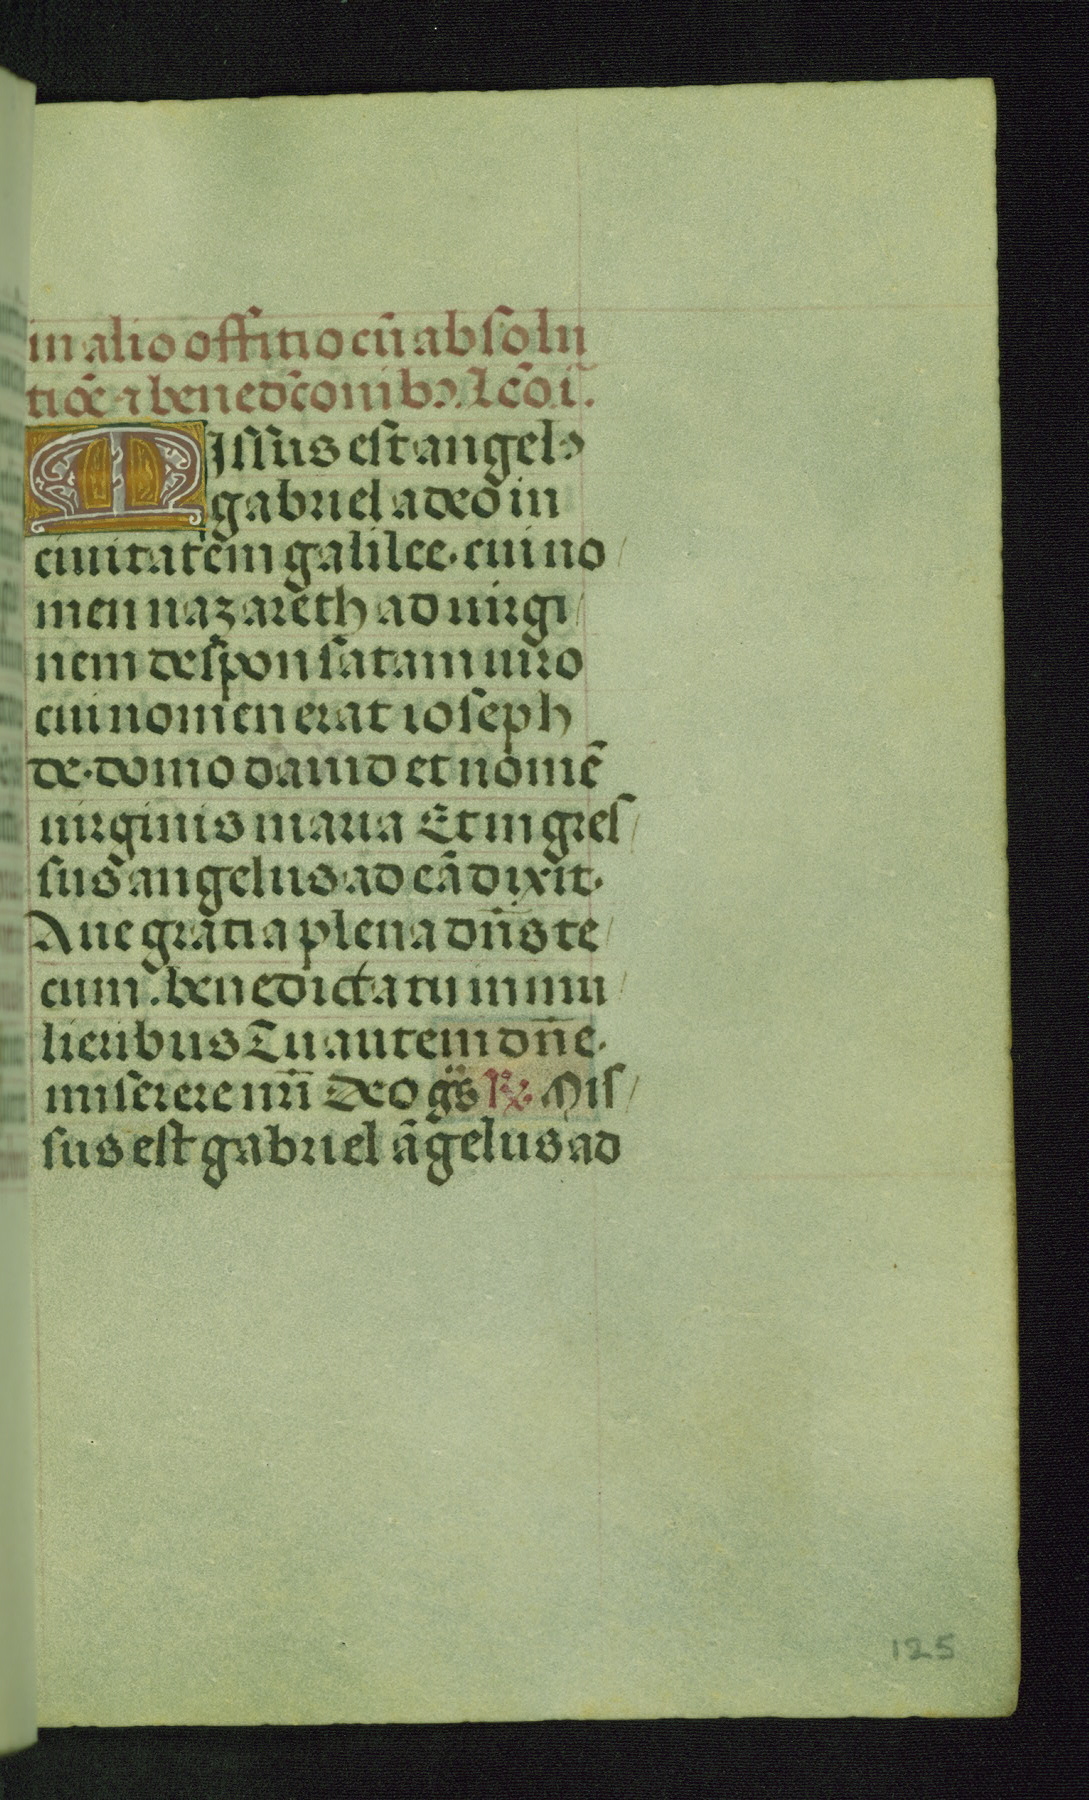 in alio offitio cū absolu
tiōe ⁊ benedc̄onibꝫ. Lc̄o .i.
MIssus est angelꝰ
gabriel a deo in
ciuitatem galilee. cui no
men nazareth ad uirgi
nem desponsatam uiro
cui nomen erat ioseph
de domo dauid et nomē
uirginis maria Et ingres
sus angelus ad eā dixit.
Aue gratia plena dn̄s te
cum. benedicta tu in mu
lieribus Tu autem dn̄e.
miserere nr̄i Deo gr̄s ℟. Mis
sus est gabriel āgelus ad
125